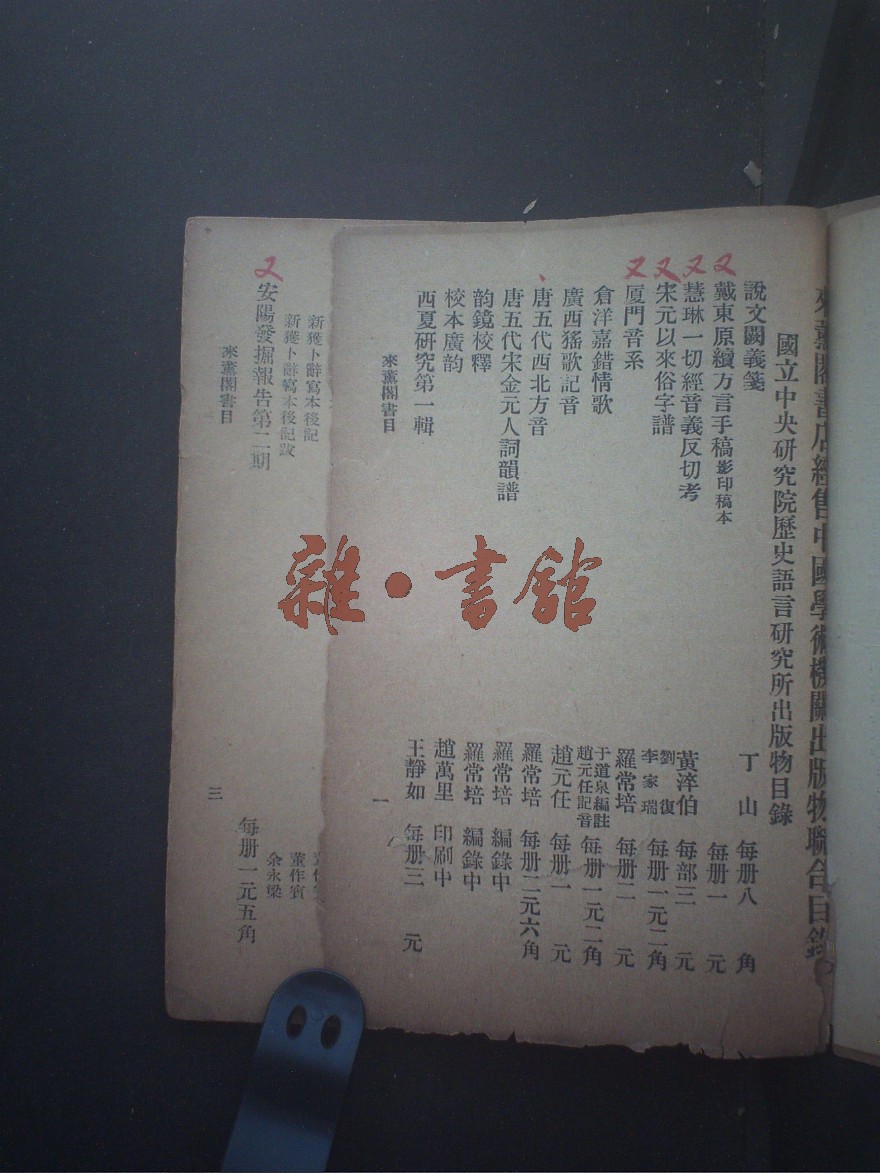 來薰閣書店經售中國學術機關出版物聯合目錄
國立中央研究院歷史語言研究所出版物目錄
說文闕義箋 丁山 每册八角
又 戴東原續方言手稿影印稿本 每册一元
又 慧琳一切經音義反切考 黃淬伯 每部三元
又 宋元以來俗字譜 劉復 李家瑞 每册一元二角
又 厦門音系 羅常培 每册二元
倉洋嘉錯情歌 于道泉編註 趙元任記音 每册一元二角
廣西猺歌記音 趙元任 每册一元
唐五代西北方音 羅常培 每册二元六角
唐五代宋金元人詞韻譜 羅常培 編錄中
韵鏡校釋 羅常培 編錄中
校本廣韵 趙萬里 印刷中
西夏研究第一輯 王靜如 每册三元
來薰閣書目 一
新獲卜辭寫本後記
新獲卜辭寫本後記跋 董作賓
余永梁
又 安陽發掘報告第二期 每册一元五角
來薰閣書目 三
雜·書館